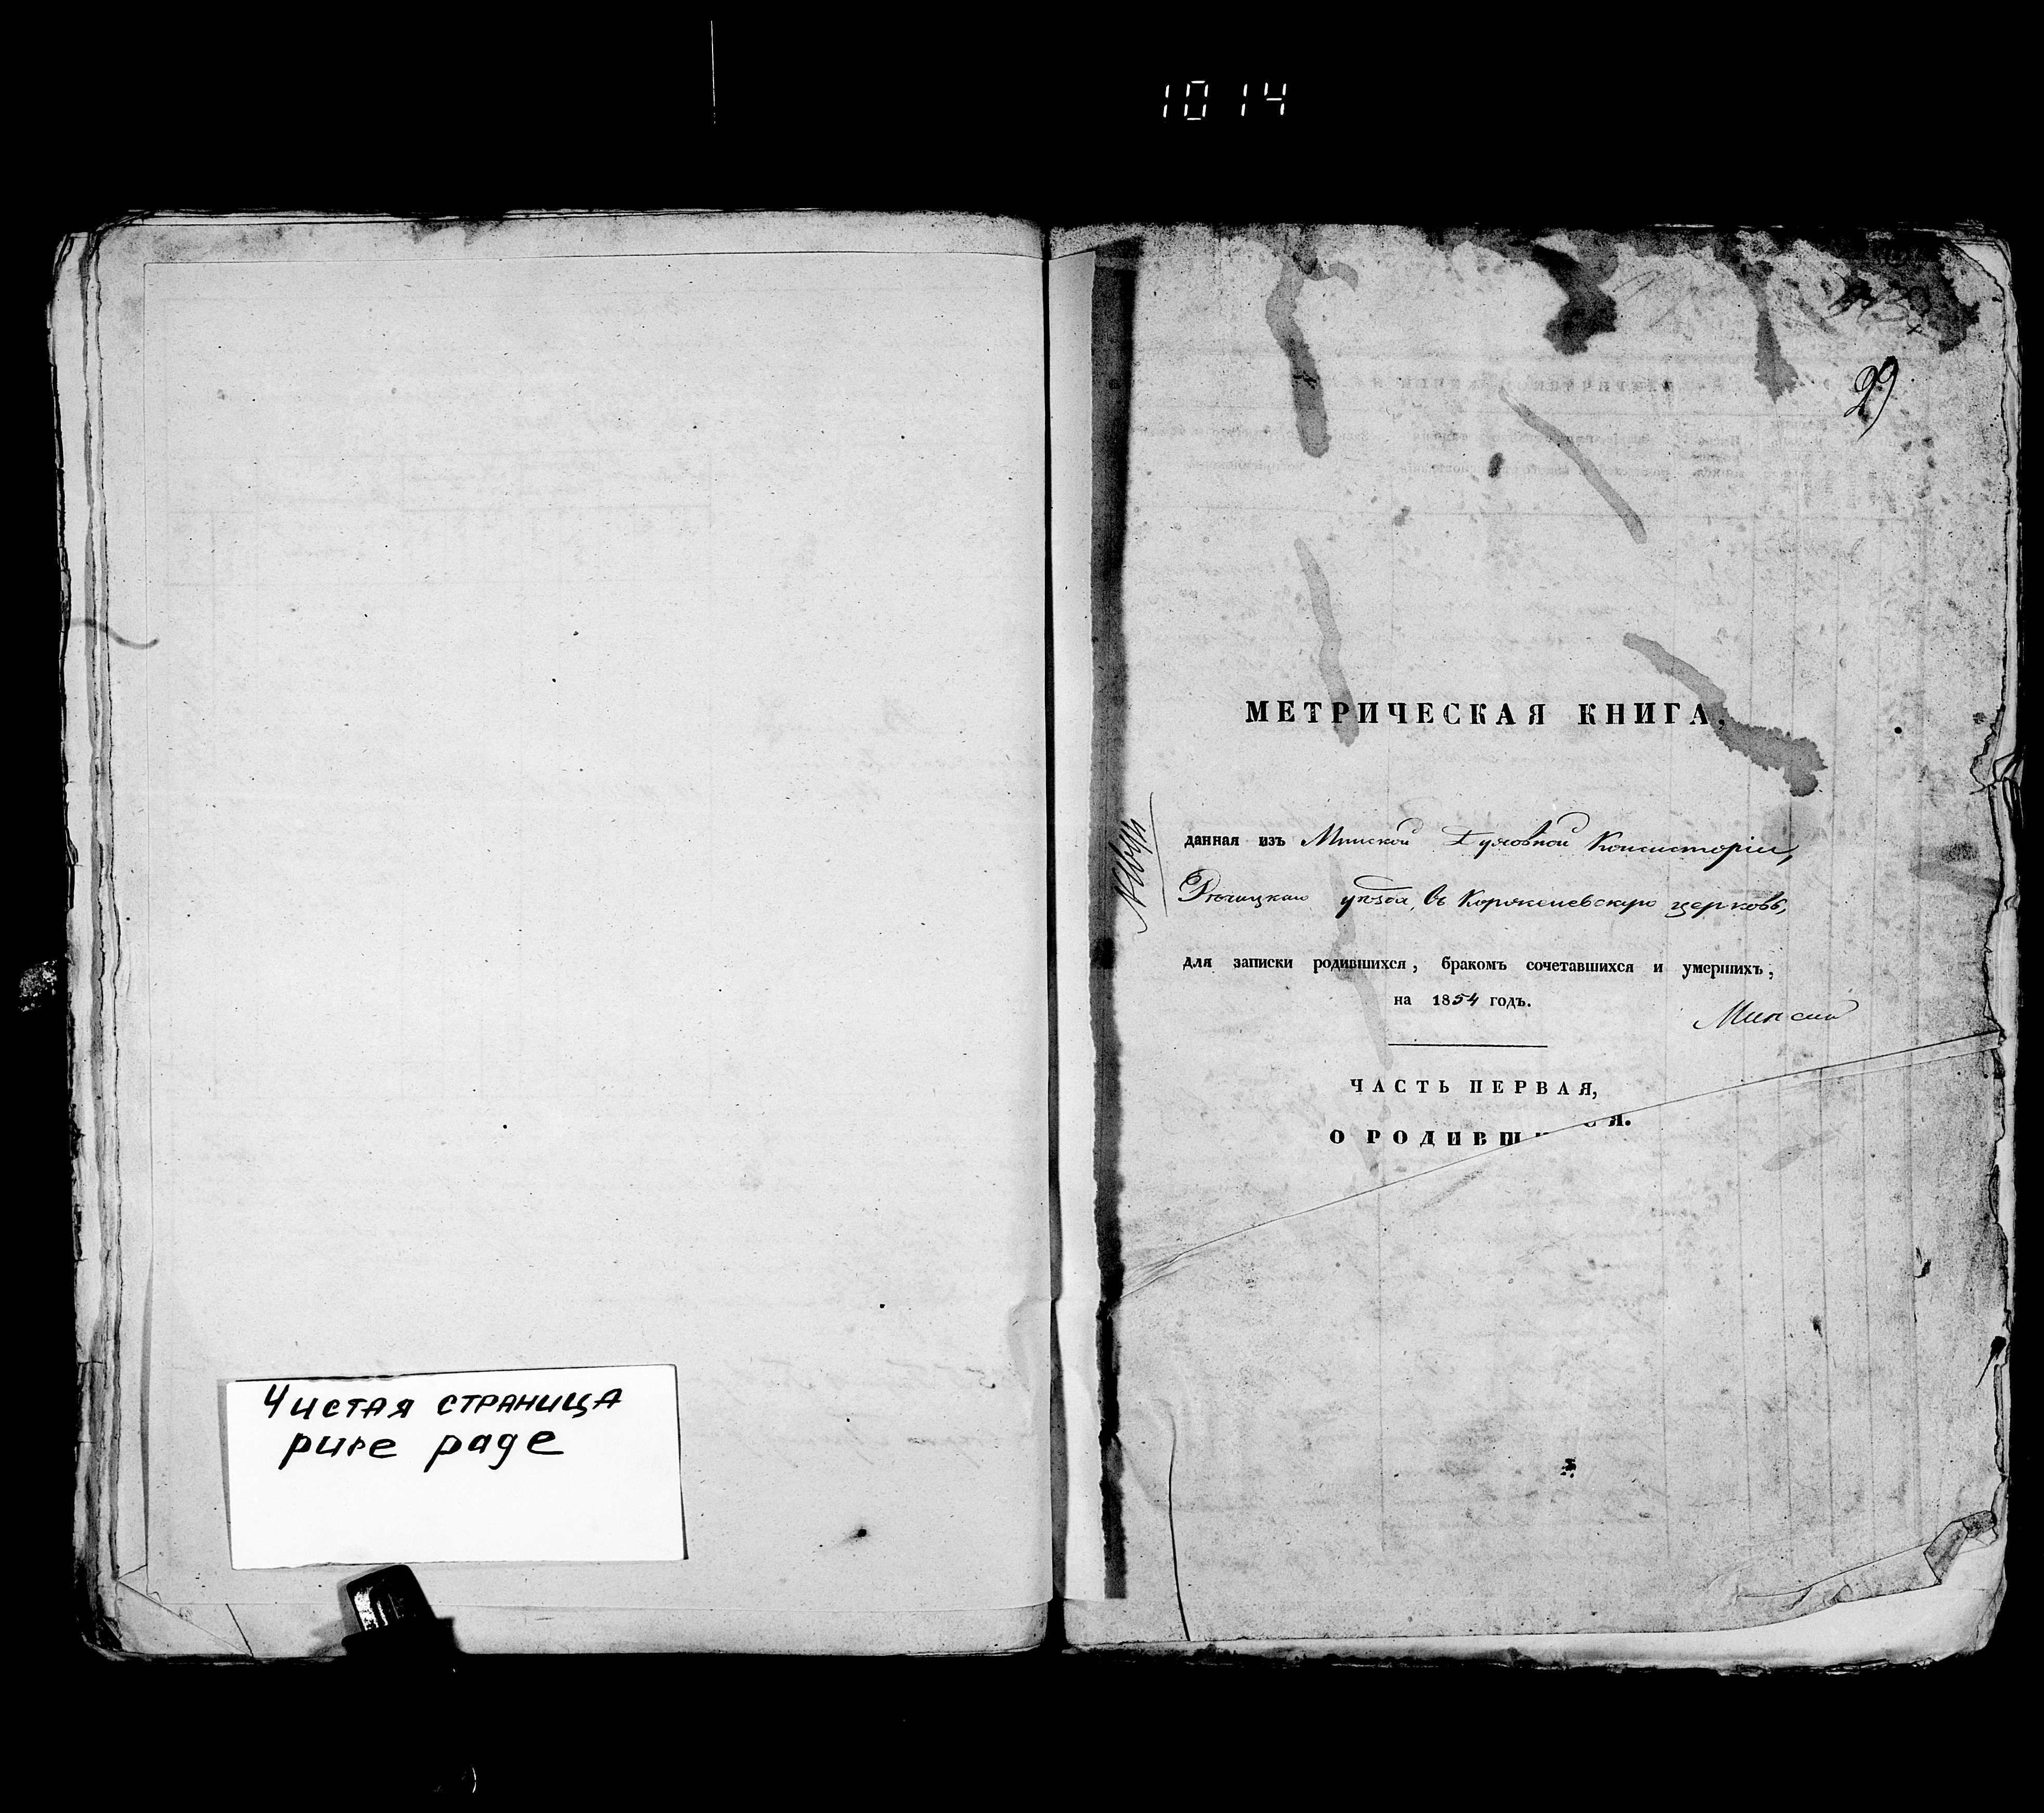 1014
29
МЕТРИЧЕСКАЯ КНИГА,
данная изъ Минской Духовной Консисторіи,
Рѣчицкаго уѣзда, въ Коржевскую церковь,
для записки родившихся, бракомъ сочетавшихся и умершихъ,
на 1854 годъ.
ЧАСТЬ ПЕРВАЯ,
О РОДИВШИХСЯ.
Чистая страница
pure page